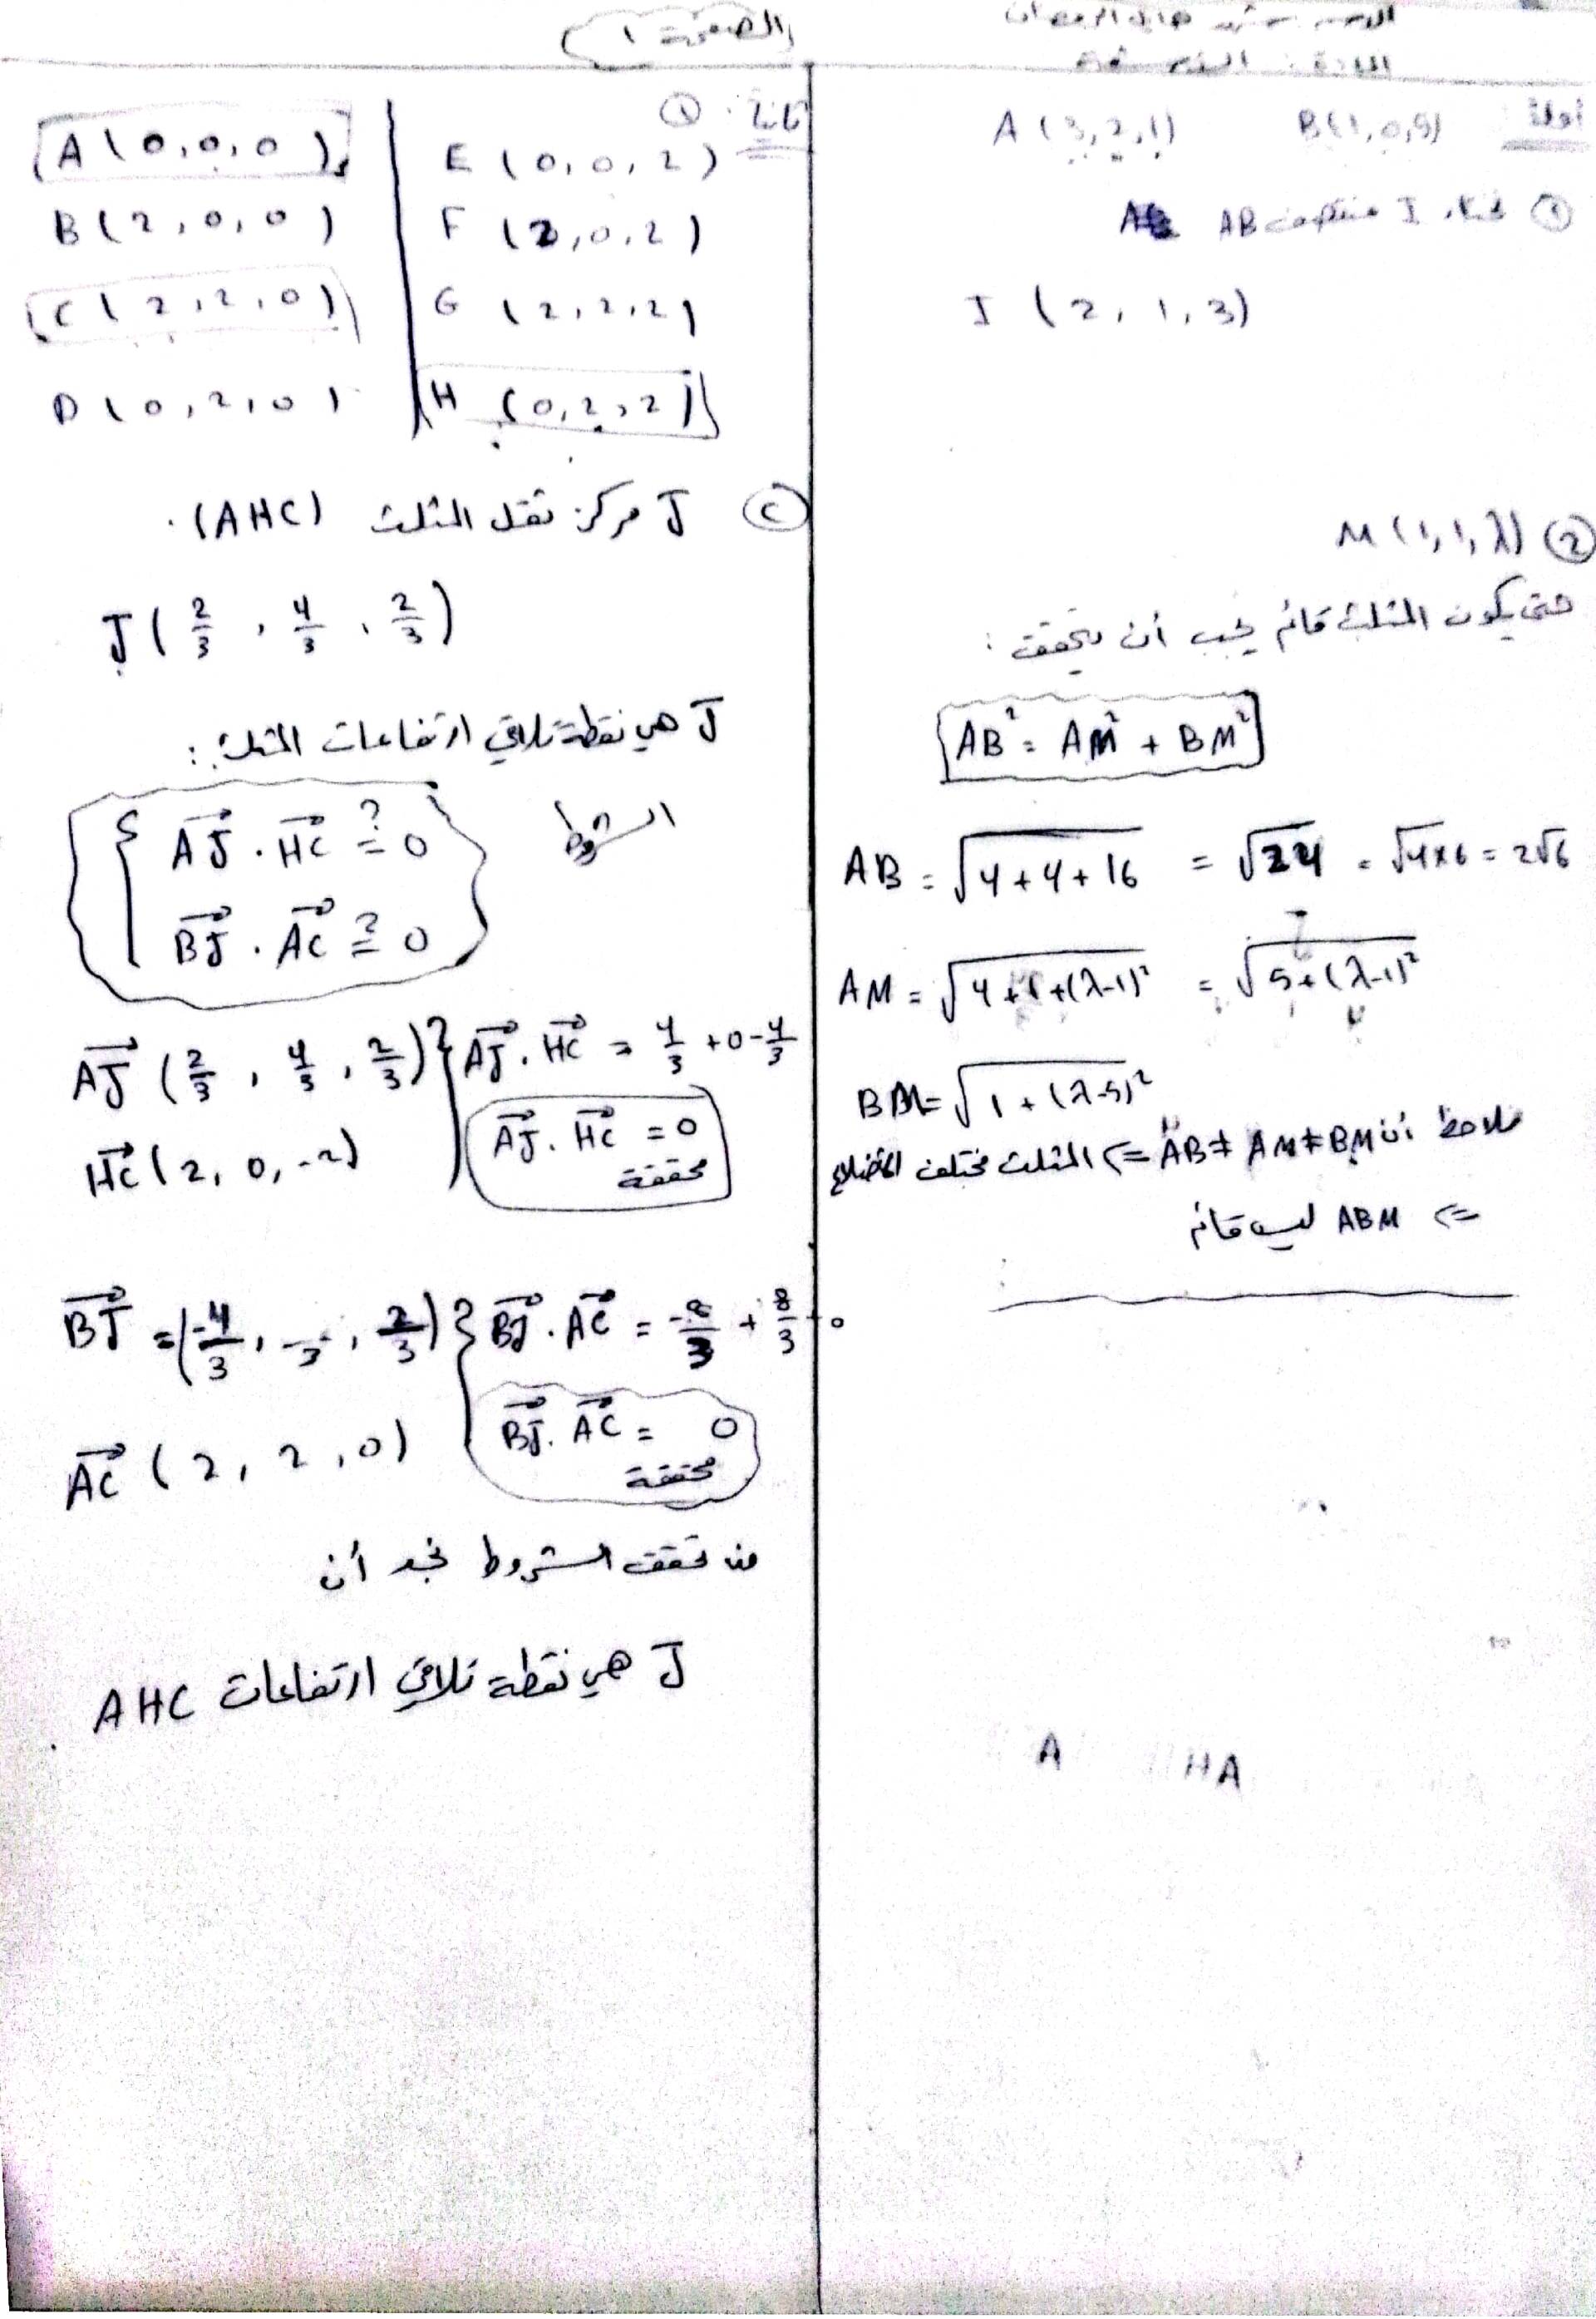 الصفحة ١
المادة :
أولاً: A (3,2,1) B(1,0,5)
① I منتصف AB
I (2, 1, 3)
② M (1, 1, λ)
حتى يكون المثلث قائم يجب أن يتحقق :
AB² = AM² + BM²
AB = √4+4+16 = √24 = √4×6 = 2√6
AM = √4+1+(λ-1)² = √5+(λ-1)²
BM = √1+(λ-5)²
نلاحظ أن AB ≠ AM ≠ BM => المثلث مختلف الأضلاع
=> ABM ليس قائم
A HA
ثانياً: ①
A (0,0,0) E (0,0,2)
B (2,0,0) F (2,0,2)
C (2,2,0) G (2,2,2)
D (0,2,0) H (0,2,2)
② J مركز ثقل المثلث (AHC).
J (2/3, 4/3, 2/3)
J هي نقطة تلاقي ارتفاعات المثلث :
الشروط
AJ . HC ?= 0
BJ . AC ?= 0
AJ (2/3, 4/3, 2/3) } AJ . HC = 4/3 + 0 - 4/3
HC (2, 0, -2) AJ . HC = 0
محققة
BJ = (-4/3, , 2/3) } BJ . AC = -8/3 + 8/3 + 0
AC (2, 2, 0) BJ . AC = 0
محققة
من تحقق الشروط نجد أن
J هي نقطة تلاقي ارتفاعات AHC